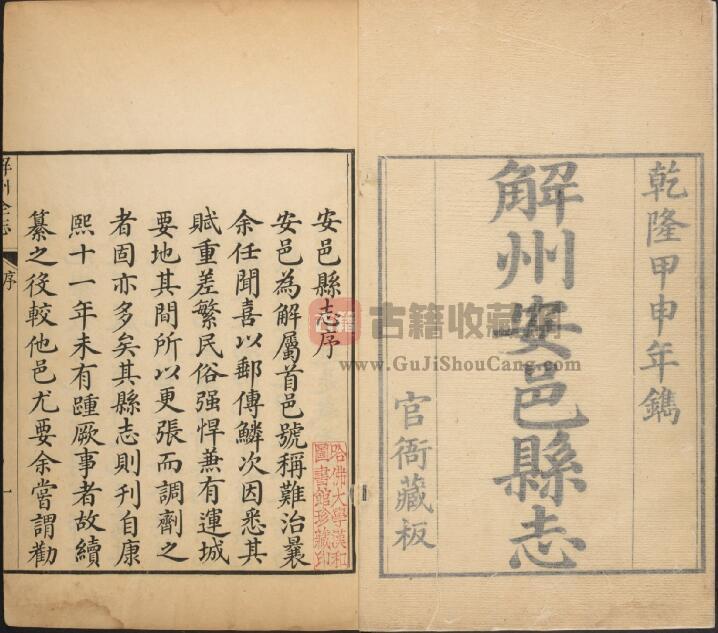 乾隆甲申年鐫
解州安邑縣志
官衙藏板
安邑縣志序
安邑為解屬首邑號稱難治曩
余任聞喜以郵傳鱗次因悉其
賦重差繁民俗强悍蕪有運城
要地其間所以更張而調劑之
者固亦多矣其縣志則刊自康
熙十一年未有踵厥事者故續
纂之役較他邑尤要余嘗謂勸
解州全志
序
一
哈佛大學漢和
圖書館珍藏印
古籍
古籍收藏网
www.GuJiShouCang.com